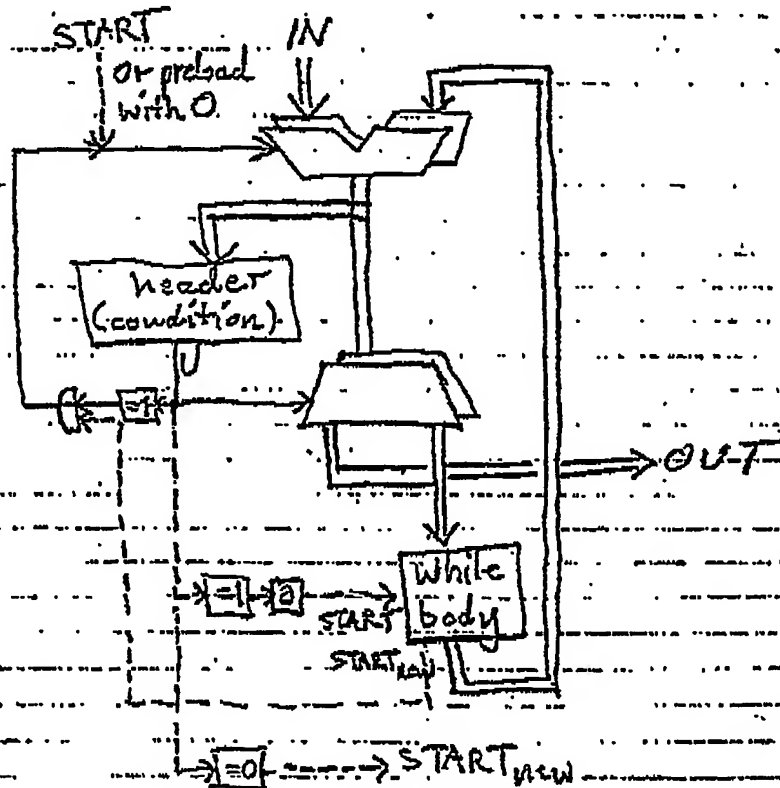 START
IN
or preload
with 0.
header
(condition)
OUT
=1
a
START
While
body
START new
=0
START new